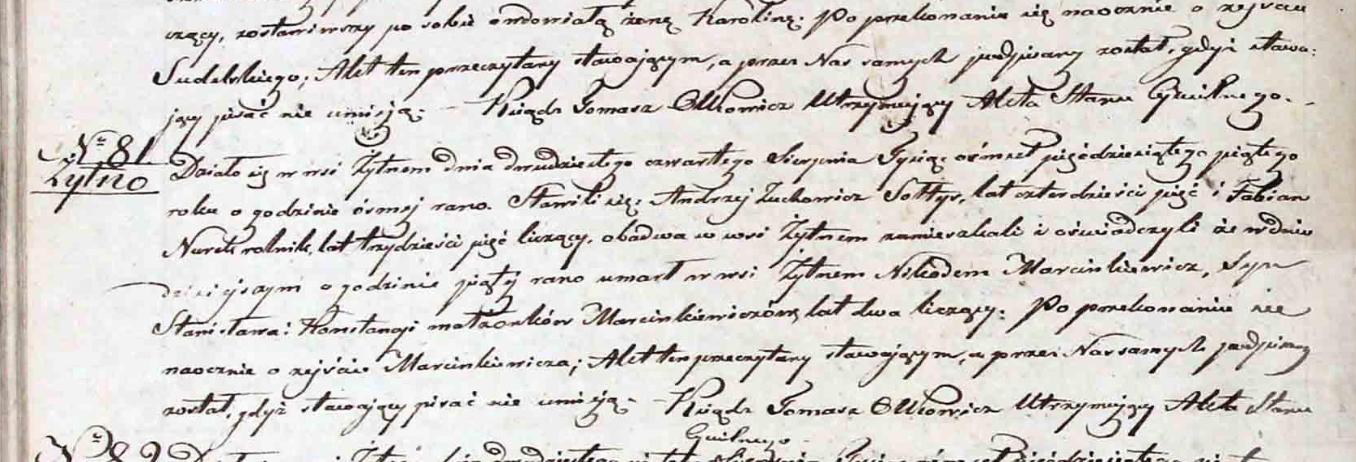 czący, zostawiwszy po sobie owdowiałą żonę Karolinę; Po przekonaniu się naocznie o zejściu
Sudelskiego; Akt ten przeczytany stawającym, a przez Nas samych podpisany został, gdyż stawa-
jący pisać nie umieją; Ksiądz Tomasz Utrzymujący Akta Stanu Cywilnego.
No 81
Żytno
Działo się w wsi Żytnem dnia dwudziestego czwartego Sierpnia Tysiąc ośmset pięćdziesiątego piątego
roku o godzinie ósmej rano. Stawili się: Andrzej Zuchowicz Sołtys, lat czterdzieści pięć i Fabian
Nurek rolnik, lat trzydzieści pięć liczący, obadwa w wsi Żytnem zamieszkali i oświadczyli że w dniu
dzisiejszym o godzinie piąty rano umarł w wsi Żytnem Nikodem Marcinkiewicz, Syn
Stanisława i Konstancji małżonków Marcinkiewiczów, lat dwa liczący; Po przekonaniu się
naocznie o zejściu Marcinkiewicza; Akt ten przeczytany stawającym, a przez Nas samych podpisany
został, gdyż stawający pisać nie umieją. Ksiądz Tomasz Utrzymujący Akta Stanu
Cywilnego.
No 82